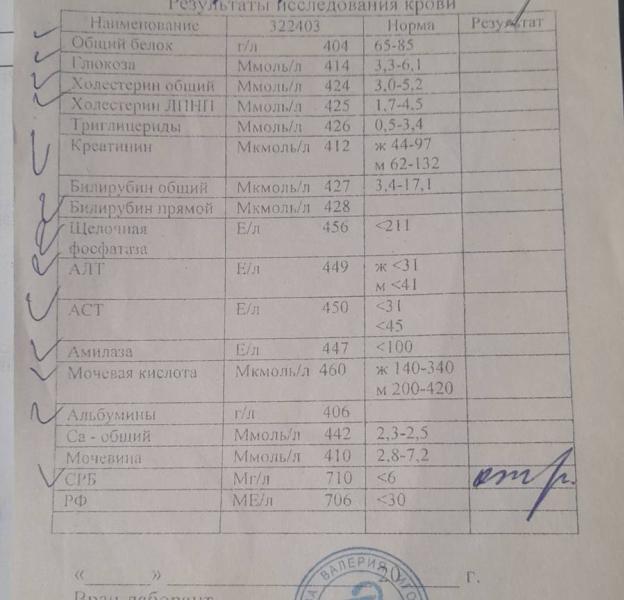 Результаты исследования крови
Наименование 322403 Норма Результат
Общий белок г/л 404 65-85
Глюкоза Ммоль/л 414 3,3-6,1
Холестерин общий Ммоль/л 424 3,0-5,2
Холестерин ЛПНП Ммоль/л 425 1,7-4,5
Триглицериды Ммоль/л 426 0,5-3,4
Креатинин Мкмоль/л 412 ж 44-97
м 62-132
Билирубин общий Мкмоль/л 427 3,4-17,1
Билирубин прямой Мкмоль/л 428
Щелочная Е/л 456 <211
фосфатаза
АЛТ Е/л 449 ж <31
м <41
АСТ Е/л 450 <31
<45
Амилаза Е/л 447 <100
Мочевая кислота Мкмоль/л 460 ж 140-340
м 200-420
Альбумины г/л 406
Са - общий Ммоль/л 442 2,3-2,5
Мочевина Ммоль/л 410 2,8-7,2
СРБ Мг/л 710 <6 отр.
РФ МЕ/л 706 <30
«______» ____________________ 20 г.
ВАЛЕРИЯ
Врач лаборант